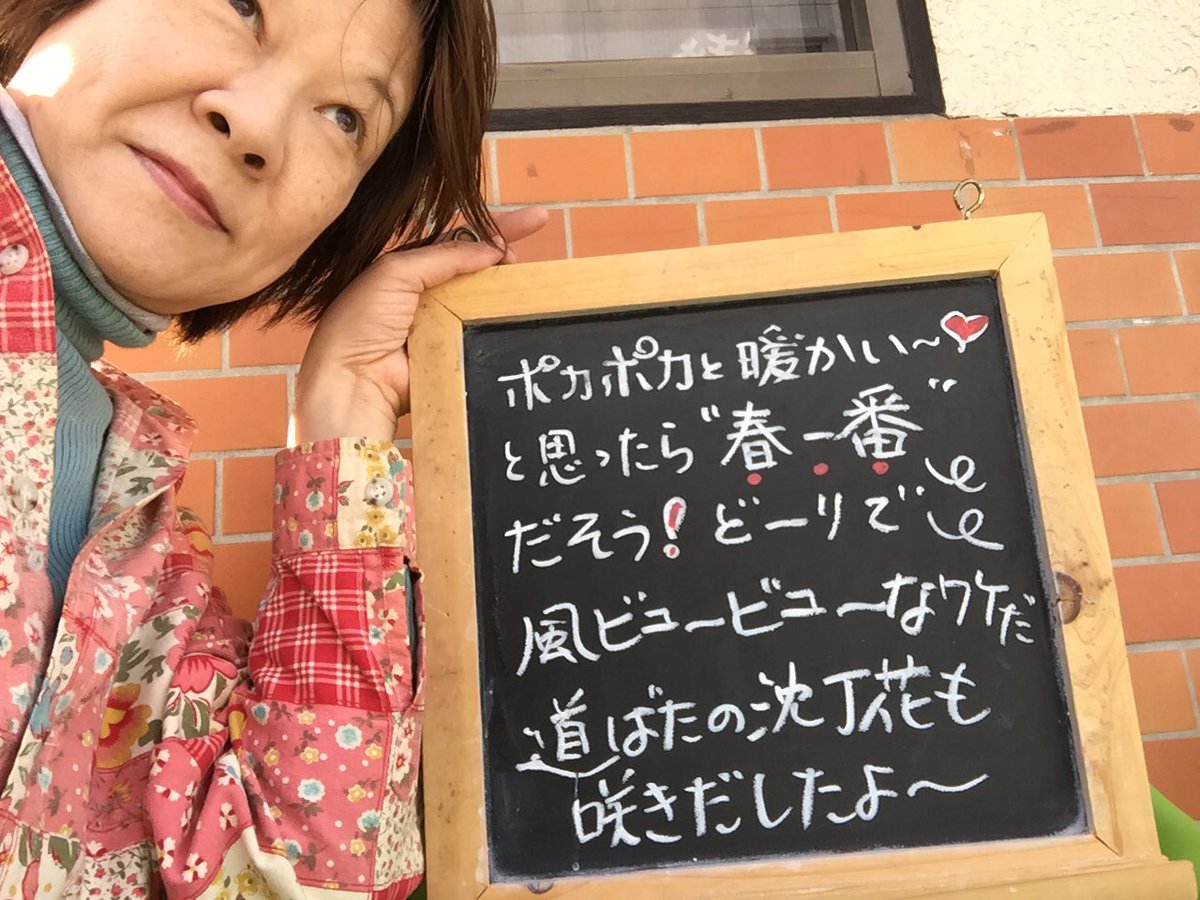 ポカポカと暖かい〜
と思ったら"春一番"
だそう!どーりで
風ビュービューなワケだ
道ばたの沈丁花も
咲きだしたよ〜